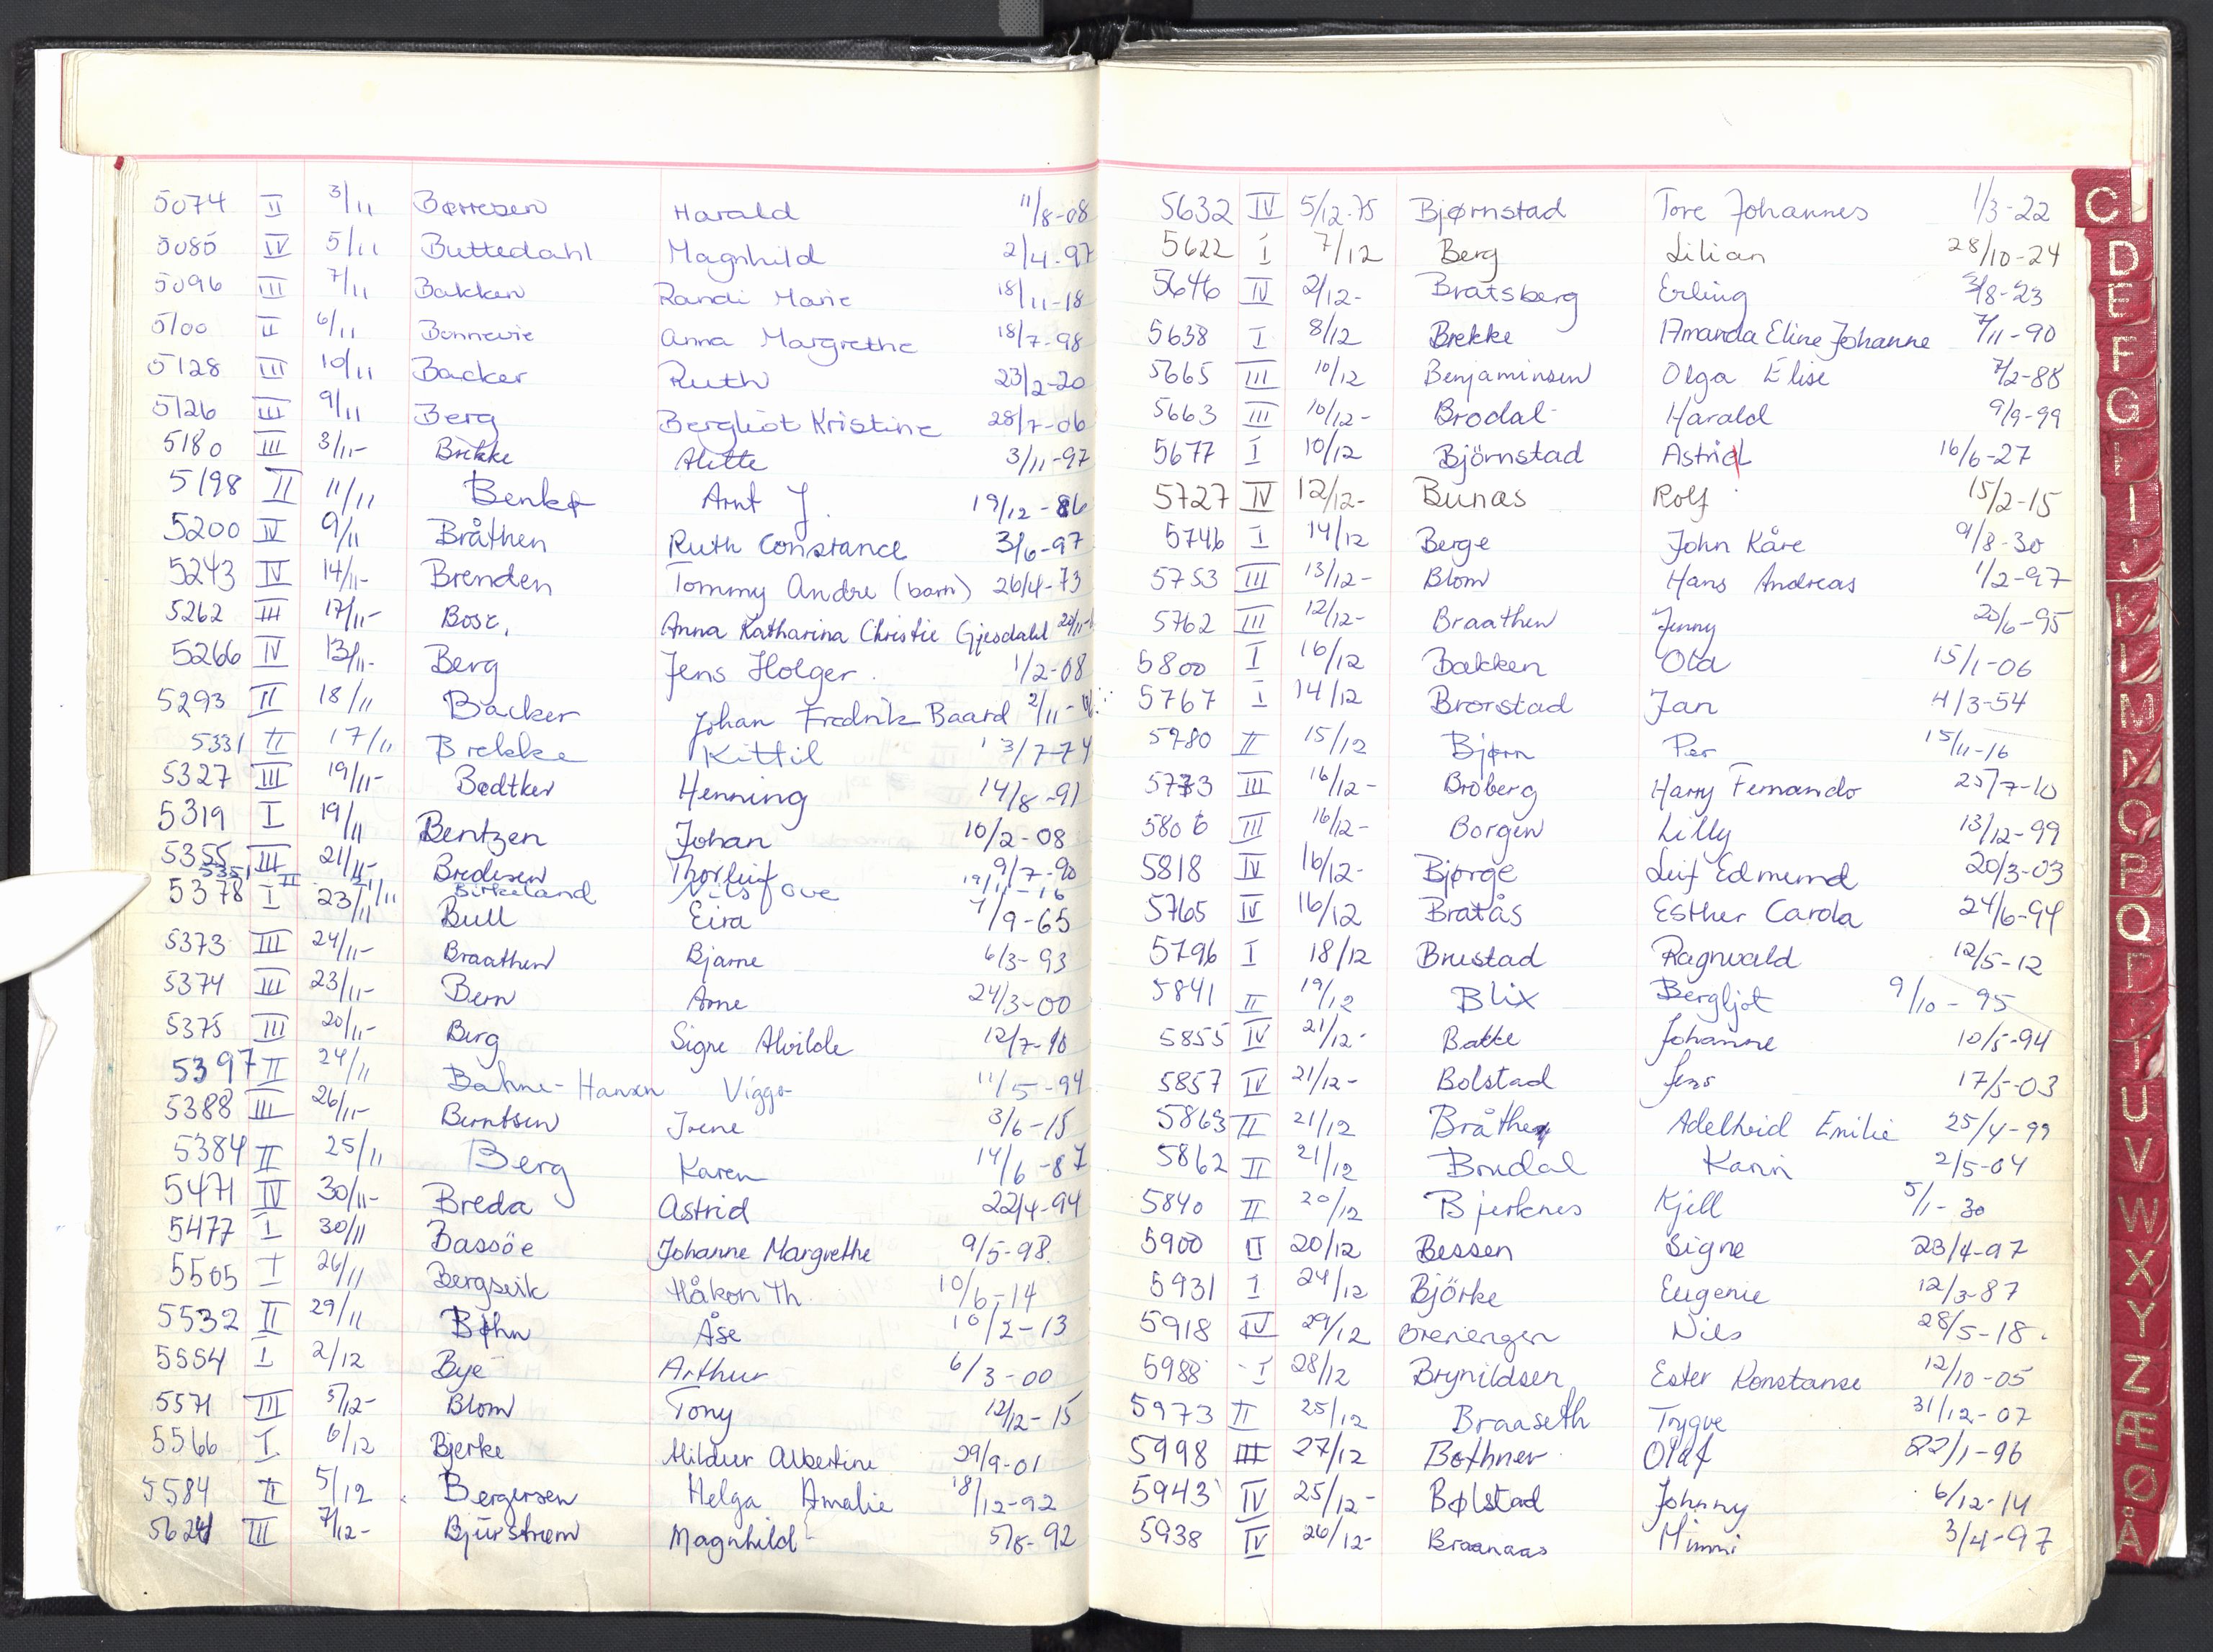 5074 II 3/11 Børresen Harald 11/8-08
5085 IV 5/11 Buttedahl Magnhild 2/4-97
5096 III 7/11 Bakken Randi Marie 18/11-18
5100 II 6/11 Bonnevie Anna Margrethe 18/7-98
5128 III 10/11 Backer Ruth 23/2-20
5126 III 9/11 Berg Bergliot Kristine 28/7-06
5180 III 3/11- Brekke Alette 3/11-97
5198 II 11/11 Benkø Arnt J. 19/12-86
5200 IV 9/11 Bråthen Ruth Constance 3/6-97
5243 IV 14/11- Brenden Tommy Andre (barn) 26/4-73
5262 III 17/11- Bose, Anna Katharina Christie Gjesdahl
5266 IV 13/11- Berg Jens Holger. 1/2-08
5293 II 18/11 Backer Johan Fredrik Baard 2/11-
5331 II 17/11 Brekke Kittil 13/7-74
5327 III 19/11- Bødtker Henning 14/8-91
5319 I 19/11 Bentzen Johan 10/2-08
5355 III 21/11- Bredesen Thorleif 9/7-90
5351 II 21/11 Birkeland Nils Ove 19/11-16
5378 I 23/11 Bull Eira 7/9-65
5373 III 24/11- Braathen Bjarne 6/3-93
5374 III 23/11- Bern Arne 24/3-00
5375 III 20/11- Berg Signe Alvilde 12/7-10
5397 II 24/11 Bahne-Hansen Viggo 11/5-94
5388 III 26/11- Berntsen Irene 3/6-15
5384 II 25/11 Berg Karen 14/6-87
5471 IV 30/11- Breda Astrid 22/4-94
5477 I 30/11 Bassöe Johanne Margrethe 9/5-98.
5505 I 26/11 Bergsvik Håkon Th. 10/6-14
5532 II 29/11 Bøhn Åse 10/2-13
5554 I 2/12 Bye Arthur 6/3-00
5571 III 5/12- Blom Tony 12/12-15
5566 I 6/12 Bjerke Hildur Albertine 29/9-01
5584 II 5/12 Bergersen Helga Amalie 18/12-92
5624 III 7/12- Bjurstrøm Magnhild 5/8-92
5632 IV 5/12-75 Bjørnstad Tore Johannes 1/3-22
5622 I 7/12 Berg Lilian 28/10-24
5646 IV 2/12- Bratsberg Erling 3/8-23
5638 I 8/12 Brekke Amanda Eline Johanne 7/11-90
5665 III 10/12 Benjaminsen Olga Elise 7/2-88
5663 III 10/12- Brodal Harald 9/9-99
5677 I 10/12 Björnstad Astrid 16/6-27
5727 IV 12/12- Bunæs Rolf 15/2-15
5746 I 14/12 Berge John Kåre 9/8-30
5753 III 13/12- Blom Hans Andreas 1/2-97
5762 III 12/12- Braathen Jenny 20/6-95
5800 I 16/12 Bakken Ola 15/1-06
5767 I 14/12 Brorstad Jan 4/3-54
5780 II 15/12 Bjørn Per 15/11-16
5773 III 16/12- Broberg Harry Fernando 25/7-10
5806 III 16/12- Borgen Lilly 13/12-99
5818 IV 16/12- Bjørge Leif Edmund 20/3-03
5765 IV 16/12 Bratås Esther Carola 24/6-94
5796 I 18/12 Brustad Ragnvald 12/5-12
5841 II 19/12 Blix Bergljot 9/10-95
5855 IV 21/12- Bakke Johanne 10/5-94
5857 IV 21/12- Bolstad Jens 17/5-03
5863 II 21/12 Bråthen Adelheid Emilie 25/4-99
5862 II 21/12 Brudal Karin 2/5-04
5840 II 20/12 Bjerknes Kjell 5/1-30
5900 II 20/12 Bessen Signe 23/4-97
5931 I 24/12 Björke Eugenie 12/3-87
5918 IV 29/12 Breriengen Nils 28/5-18.
5988 I 28/12 Brynildsen Ester Konstanse 12/10-05
5973 II 25/12 Braaseth Trygve 31/12-07
5998 III 27/12 Bothner Olaf 22/1-96
5943 IV 25/12- Bølstad Johnny 6/12-14
5938 IV 26/12- Braanaas Mimmi 3/4-97
C
D
E
F
G
H
I
J
K
L
M
N
O
P
Q
R
T
U
V
W
X
Y
Z
Æ
Ø
Å